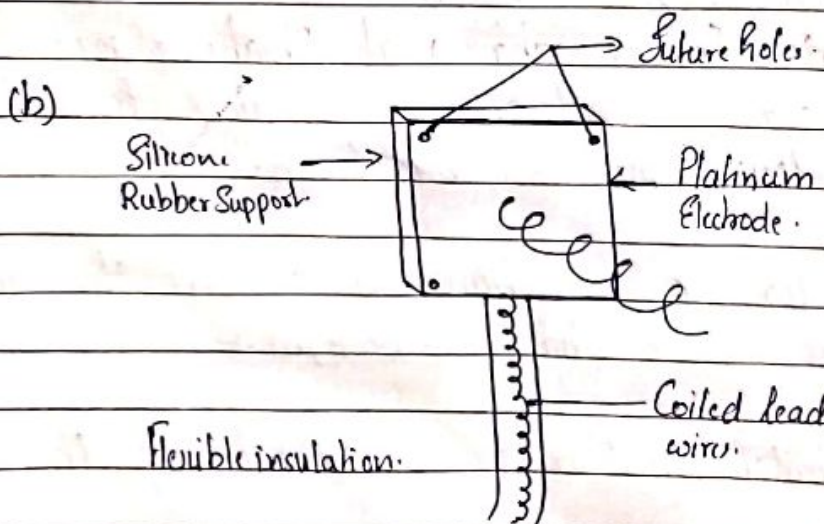 Suture holes.
(b)
Silicone
Rubber Support.
Platinum
Electrode.
Coiled lead
wires.
Flexible insulation.